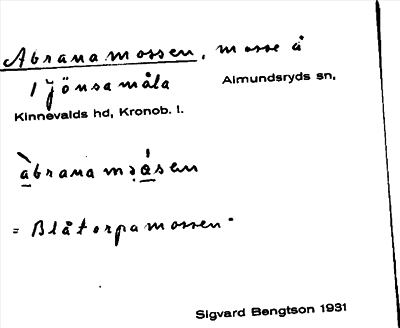 Abranamossen, mosse å
Tjönsamåla Almundsryds sn,
Kinnevalds hd, Kronob. l.
àbranamɔ́sen
= Blåtorpamossen
Sigvard Bengtson 1931